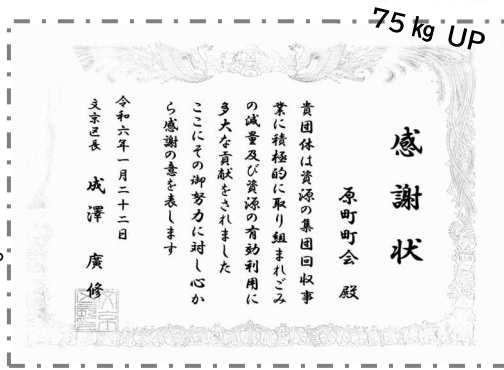 75 kg UP
感謝状
原町町会 殿
貴団体は資源の集団回収事
業に積極的に取り組まれごみ
の減量及び資源の有効利用に
多大な貢献をされました
ここにその御努力に対し心か
ら感謝の意を表します
令和六年一月二十二日
文京区長 成澤 廣修